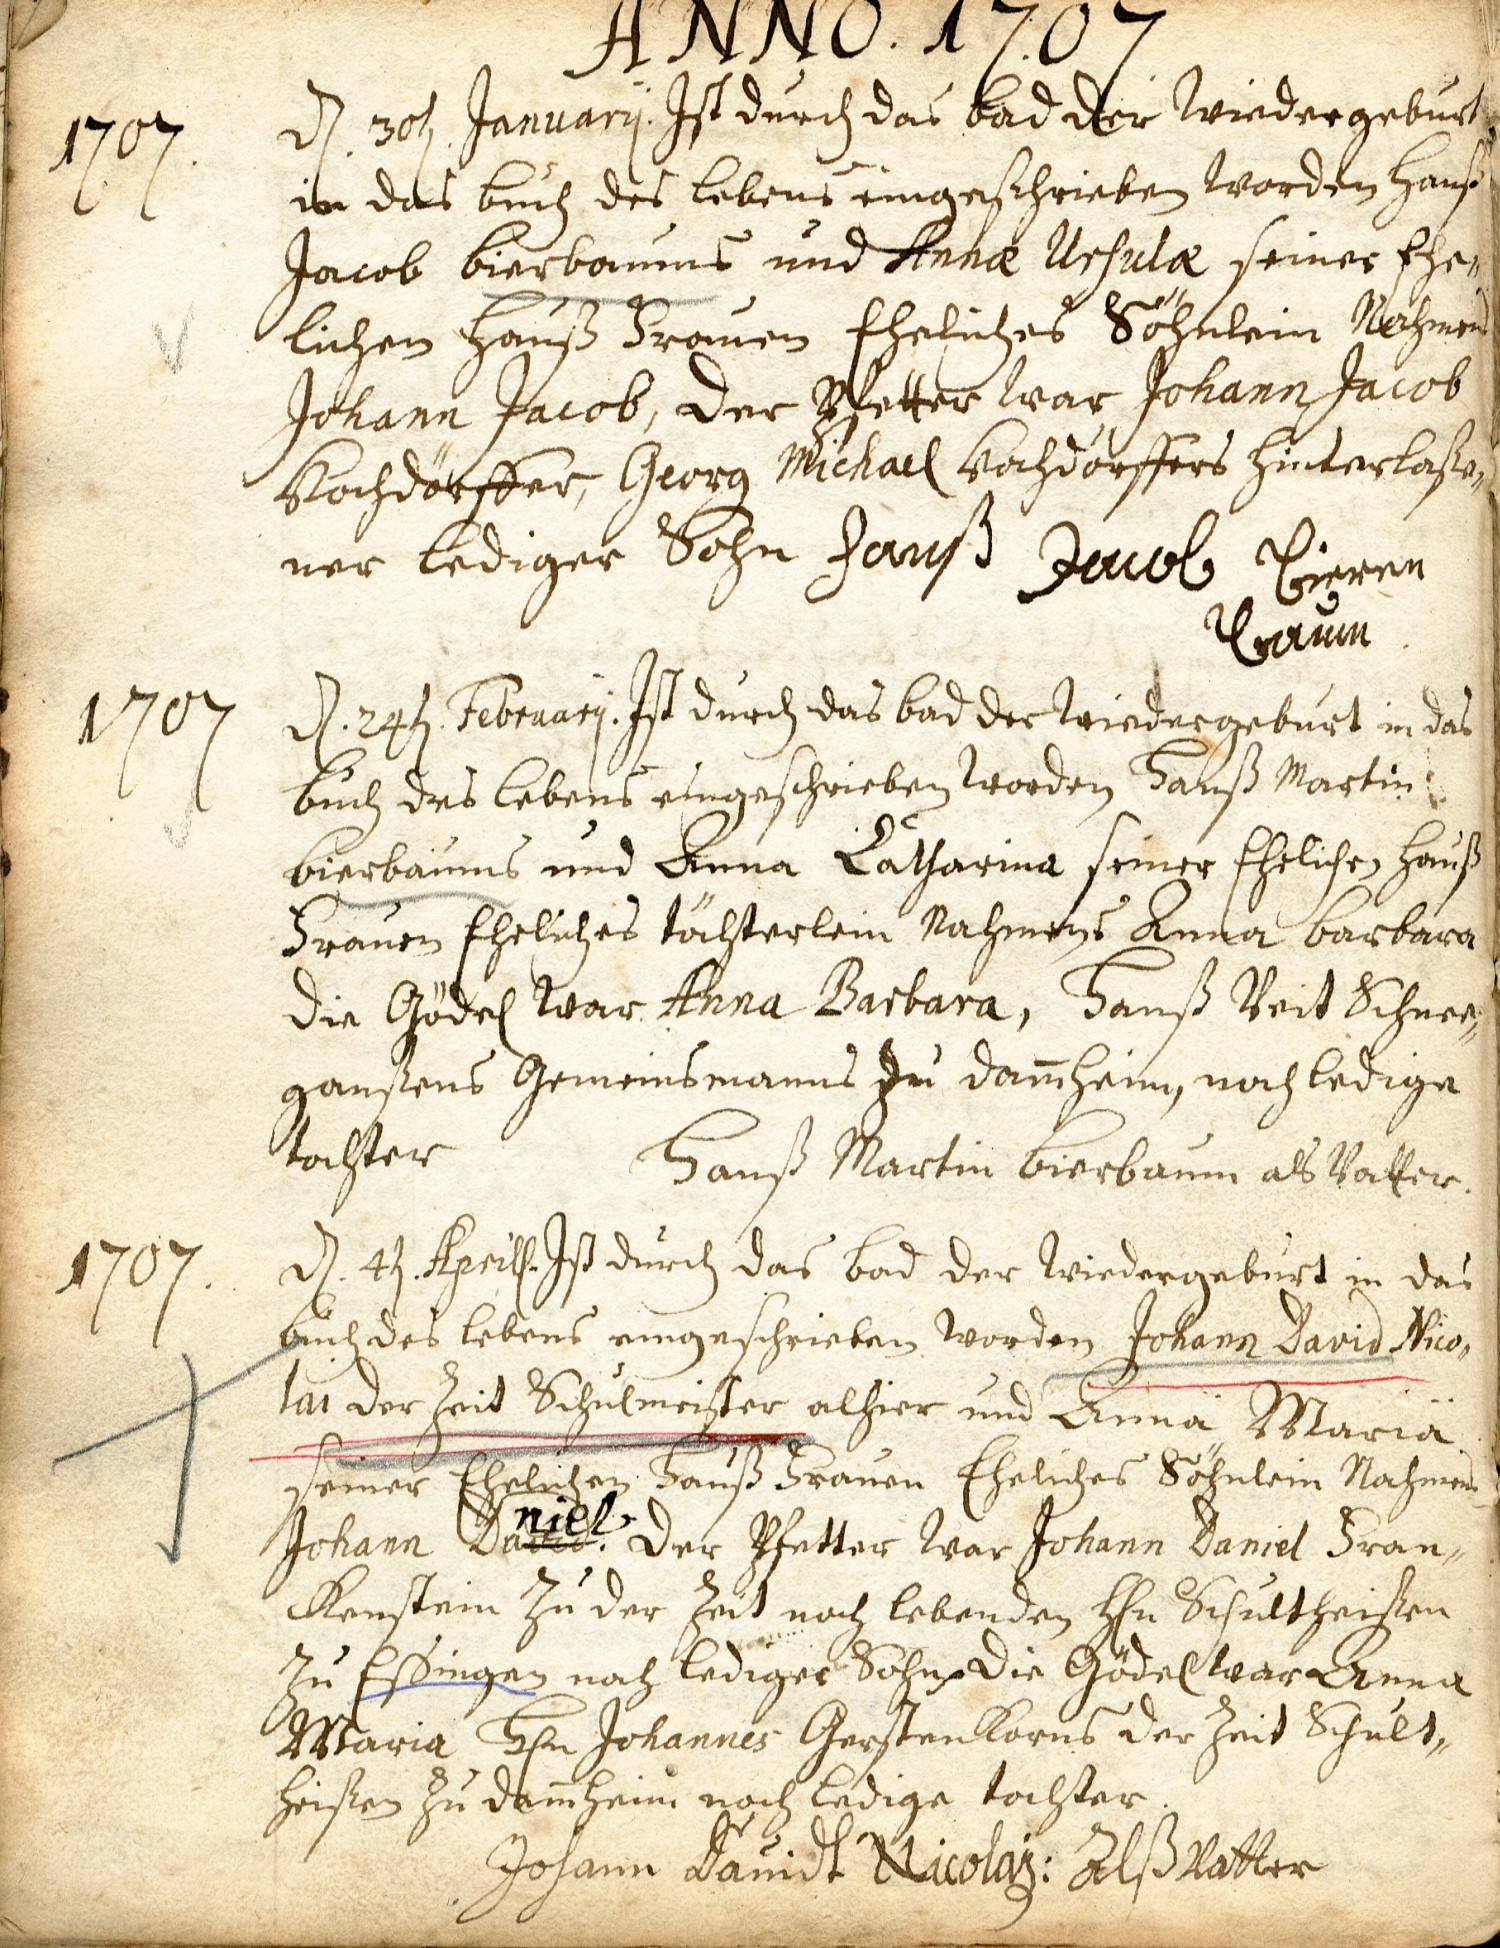 ANNO. 1707
1707. d. 30t. Januarij. Ist durch das bad der Wiedergeburt
in das buch des lebens eingeschrieben worden Hanß
Jacob bierbaums und Annæ Ursulæ seiner Ehe„
lichen Hauß Frauen Eheliches Söhnlein Nahmens
Johann Jacob, der Pfetter war Johann Jacob
Kochdörffer, Georg Michael Kochdörffers hinterlaße„
ner lediger Sohn Hanß Jacob Bieren
Baum
1707 d. 24t. Februarij. Ist durch das bad der Wiedergeburt in das
buch des lebens eingeschrieben worden Hanß Martin
bierbaums und Anna Catharina seiner Ehelichen Hauß
Frauen Eheliches töchterlein Nahmens Anna barbara
die Gödel war Anna Barbara, Hanß Veit Schnee„
ganßens Gemeinsmanns zu dam̅heim, noch ledige
tochter Hanß Martin bierbaum als Vatter.
1707. d. 4t. Aprill. Ist durch das bad der Wiedergeburt in das
buch des lebens eingeschrieben worden Johann David Nico„
lai der Zeit Schulmeister alhier und Annä Mariä
seiner Ehelichen Hauß Frauen Eheliches Söhnlein Nahmens
niel
Johann David. der Pfetter war Johann Daniel Fran„
kenstein zu der Zeit noch lebenden Hn Schultheißen
zu Essingen noch lediger Sohn die Gödel war Anna
Maria Hn Johannes Gerstenkorns der Zeit Schult„
heißen zu dam̅heim noch ledige tochter.
Johann Dauidt Nicolaÿ: Alß Vatter